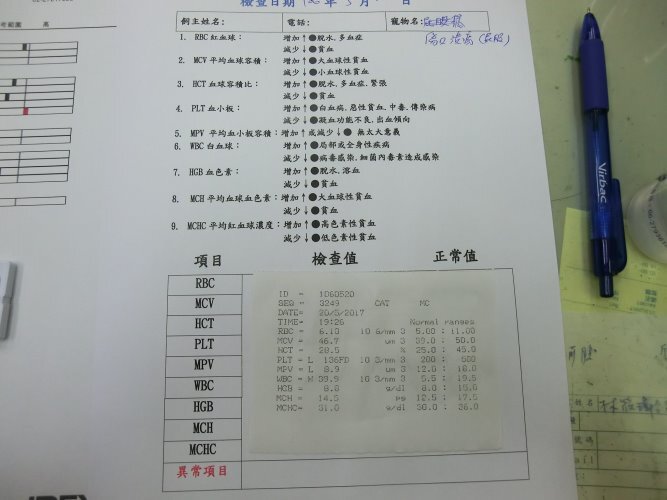 考範圍 高
檢查日期 年 5月 日
飼主姓名: 電話: 寵物名:
1. RBC 紅血球: 增加↑●脫水, 多血症
減少↓●貧血
2. MCV 平均血球容積: 增加↑●大血球性貧血
減少↓●小血球性貧血
3. HCT 血球容積比: 增加↑●脫水, 多血症, 緊張
減少↓●貧血
4. PLT 血小板: 增加↑●白血病, 惡性貧血, 中毒, 傳染病
減少↓●凝血功能不良, 出血傾向
5. MPV 平均血小板容積: 增加↑或減少↓● 無太大意義
6. WBC 白血球: 增加↑●局部或全身性疾病
減少↓●病毒感染, 細菌內毒素造成感染
7. HGB 血色素: 增加↑●脫水, 溶血
減少↓●貧血
8. MCH 平均血球血色素: 增加↑●大血球性貧血
減少↓●貧血
9. MCHC 平均紅血球濃度: 增加↑●高色素性貧血
減少↓●低色素性貧血
項目 檢查值 正常值
RBC
MCV
HCT
PLT
MPV
WBC
HGB
MCH
MCHC
異常項目
ID = 1060520
SEQ = 3249 CAT MC
DATE= 20/5/2017
TIME= 19:26 Normal ranges
RBC = 6.10 10 6/mm 3 5.00 : 11.00
MCV = 46.7 um 3 39.0 : 50.0
HCT = 28.5 % 25.0 : 45.0
PLT = L 136FD 10 3/mm 3 200 : 500
MPV = L 8.9 um 3 12.0 : 18.0
WBC = H 39.9 10 3/mm 3 5.5 : 19.5
HGB = 8.8 g/dl 8.0 : 15.0
MCH = 14.5 pg 12.5 : 17.5
MCHC= 31.0 g/dl 30.0 : 36.0
Virbac